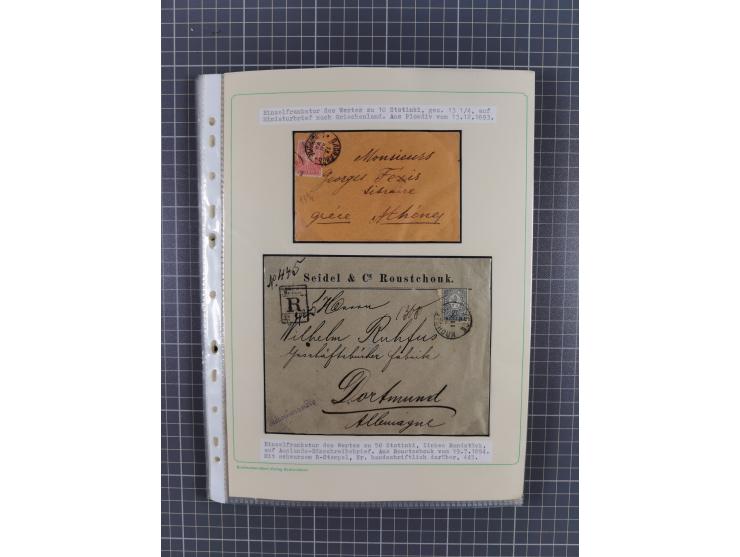 Einzelfrankatur des Wertes zu 10 Stotinki, gez. 13 1/4, auf
Miniaturbrief nach Griechenland. Aus Plovdiv vom 13.12.1893.
Monsieurs
Georges Fexis
Libraire
grèce Athènes
No 445
Seidel & Co Roustchouk.
R
Herrn
Wilhelm Ruhfus
Geschäftsbücher Fabrik
Dortmund
Allemagne
Einzelfrankatur des Wertes zu 50 Stotinki, linkes Randstück,
auf Auslands-Einschreibebrief. Aus Roustchouk vom 19.7.1894.
Mit schwarzem R-Stempel, Nr. handschriftlich darüber, 445.